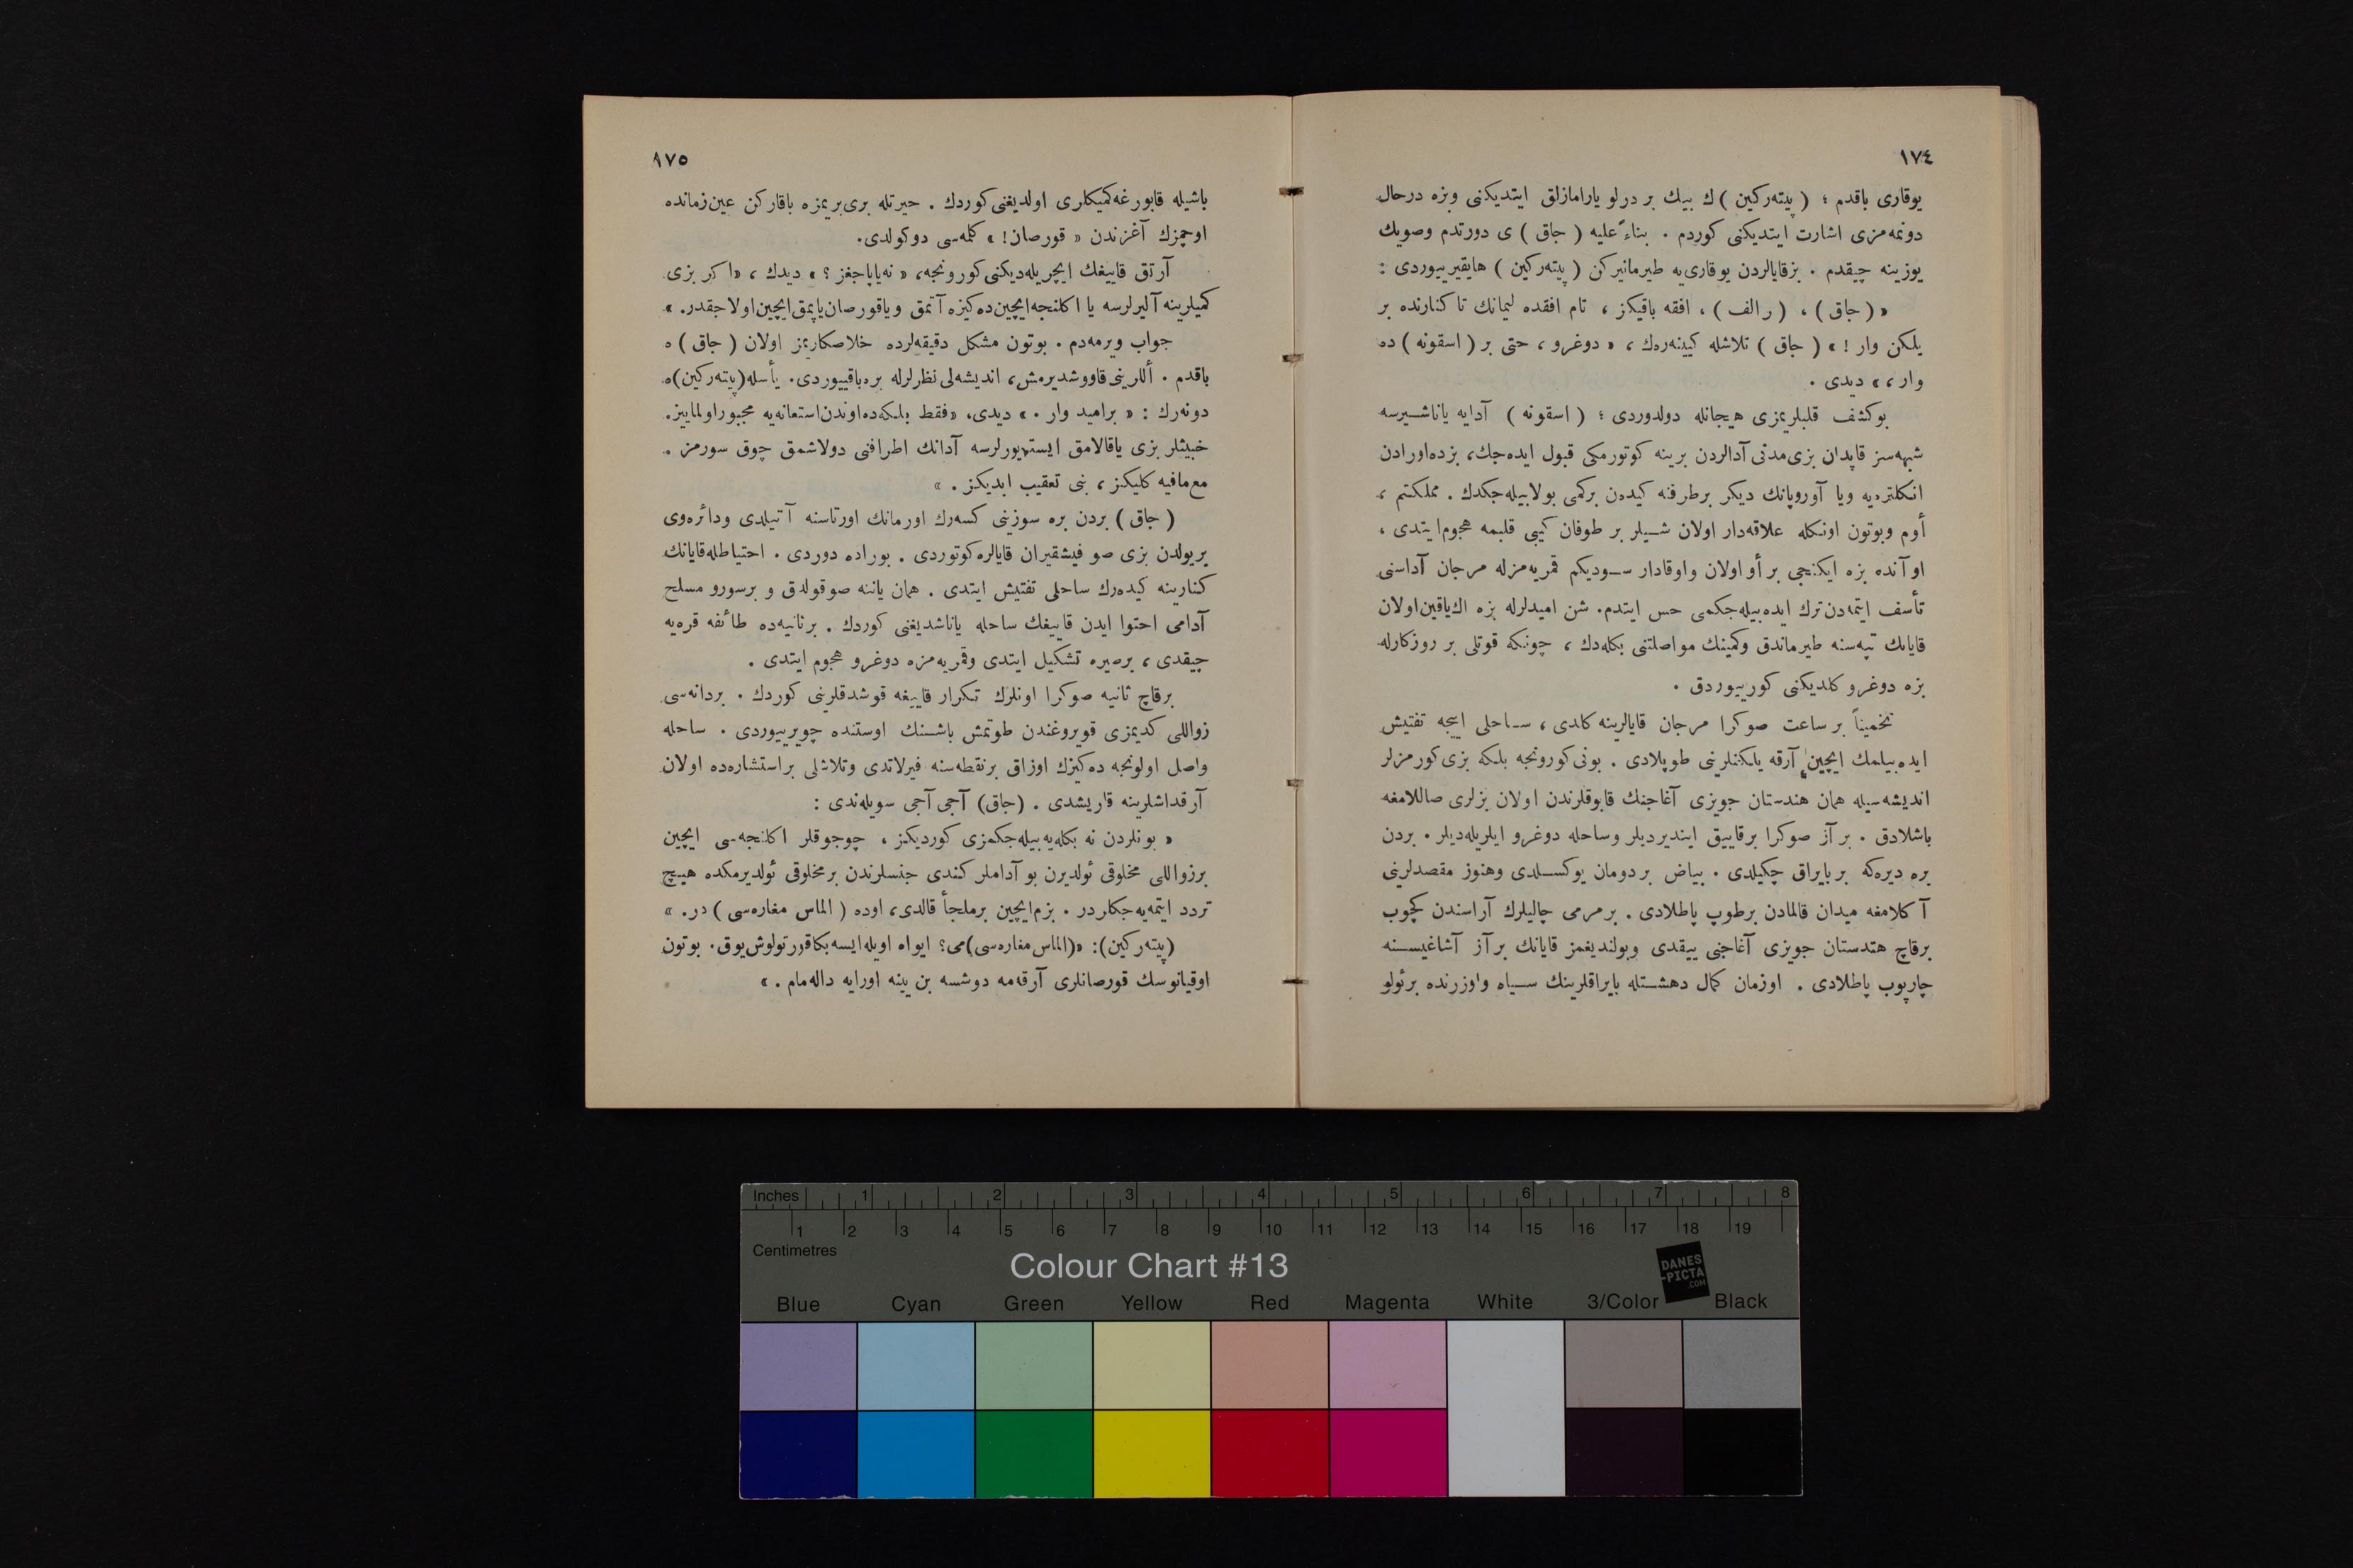 ١٧٤
یوقاری باقدم ؛ ( پیته‌رکین ) ك بیك بر درلو یارامازلق ایتدیکنی وبزه درحال
دونمه‌مزی اشارت ایتدیکنی کوردم . بناءً علیه ( جاق ) ی دورتدم وصویك
یوزینه چیقدم . بزقایالردن یوقاری‌یه طیرمانیرکن ( پیته‌رکین ) هایقیرییوردی :
« ( جاق ) ، ( رالف ) ، افقه باقیکز ، تام افقده لیمانك تا کنارنده بر
یلکن وار ! » ( جاق ) تلاشله کیینه‌رەك ، « دوغرو ، حتی بر ( اسقونه ) ده
وار ، » دیدی .
بوکشف قلبلریمزی هیجانله دولدوردی ؛ ( اسقونه ) آدایه یاناشیرسه
شبهه‌سز قاپدان بزی‌مدنی آدالردن برینه کوتورمکی قبول ایده‌جك ، بزده‌اورادن
انکلتره‌یه ویا آوروپانك دیکر برطرفنه کیدەن برکمی بولابیله‌جکدك . مملکتم ،
أوم وبوتون اونکله علاقه‌دار اولان شیلر بر طوفان کیبی قلبمه هجوم ایتدی ،
او آنده بزه ایکنجی بر أو اولان واوقادار سودیکم قمریه‌مزله مرجان آداسنی
تأسف ایتمەدن ترك ایده‌بیله‌جکمی حس ایتدم. شن امیدلرله بزه اك‌یاقین‌اولان
قایانك تپه‌سنه طیرماندق وکمینك مواصلتنی بکله‌دك ، چونکه قوتلی بر روزکارله
بزه دوغرو کلدیکنی کورییوردق .
تخمیناً بر ساعت صوکرا مرجان قایالرینه کلدی ، ساحلی اییجه تفتیش
ایده‌بیلمك ایچین آرقه یلکنلرینی طوپلادی . بونی‌کورونجه بلکه بزی‌کورمزلر
اندیشه‌سیله همان هندستان جویزی آغاجنك قابوقلرندن اولان بزلری صاللامغه
باشلادق . بر آز صوکرا برقاییق ایندیردیلر وساحله دوغرو ایلریله‌دیلر . بردن
بره دیره‌که بربایراق چکیلدی . بیاض بردومان یوکسلدی وهنوز مقصدلرینی
آکلامغه میدان قالمادن برطوپ پاطلادی . برمرمی چالیلرك آراسندن کچوب
برقاچ هندستان جویزی آغاجنی ییقدی وبولندیغمز قایانك برآز آشاغیسنه
چارپوب پاطلادی . اوزمان کمال دهشتله بایراقلرینك سیاه واوزرنده برئولو
١٧٥
باشیله قابورغه‌کمیکلری اولدیغنی‌کوردك . حیرتله بری‌بریمزه باقارکن عین‌زمانده
اوچمزك آغزندن « قورصان! » کلمه‌سی دوکولدی.
آرتق قاییغك ایچریله‌دیکنی‌کورونجه، « نه‌یاپاجغز ؟ » دیدك ، « اکر بزی
کمیلرینه آلیرلرسه یا اکلنجه‌ایچین‌ده‌کیزه آتمق ویاقورصان‌یاپمق‌ایچین‌اولاجقدر. »
جواب ویرمه‌دم . بوتون مشکل دقیقه‌لرده خلاصکاریمز اولان ( جاق ) ه
باقدم . أللرینی‌قاووشدیرمش، اندیشه‌لی نظرلرله بره‌باقییوردی. یأسله(پیته‌رکین)ه
دونه‌رك : « برامید وار . » دیدی، «فقط بلکه‌ده‌اوندن‌استعانه‌یه مجبوراولماییز.
خبیثلر بزی یاقالامق ایسته‌یورلرسه آدانك اطرافنی دولاشمق چوق سورمز .
مع‌مافیه کلیکز ، بنی تعقیب ایدیکز . »
( جاق ) بردن بره سوزینی کسه‌رك اورمانك اورتاسنه آتیلدی ودائره‌وی
بریولدن بزی صو فیشقیران قایالره‌کوتوردی . بوراده دوردی . احتیاطله‌قایانك
کنارینه کیده‌رك ساحلی تفتیش ایتدی . همان یاننه صوقولدق و برسورو مسلح
آدامی احتوا ایدن قاییغك ساحله یاناشدیغنی کوردك . برثانیه‌ده طائفه قره‌یه
چیقدی ، برصیره تشکیل ایتدی وقمریه‌مزه دوغرو هجوم ایتدی .
برقاچ ثانیه صوکرا اونلرك تکرار قاییغه قوشدقلرینی کوردك . بردانه‌سی
زواللی کدیمزی قویروغندن طوتمش باشنك اوستنده چویرییوردی . ساحله
واصل اولونجه ده‌کیزك اوزاق برنقطه‌سنه فیرلاتدی وتلاشلی براستشاره‌ده اولان
آرقداشلرینه قاریشدی . (جاق) آجی آجی سویله‌ندی :
« بونلردن نه بکله‌یه‌بیله‌جکمزی کوردیکز ، چوجوقلر اکلنجه‌سی ایچین
برزواللی مخلوقی ئولدیرن بو آداملر کندی جنسلرندن برمخلوقی ئولدیرمکده هیچ
تردد ایتمه‌یه‌جکلردر . بزم‌ایچین برملجأ قالدی، اوده ( الماس مغاره‌سی ) در. »
(پیته‌رکین): «(الماس‌مغاره‌سی)می؟ ایواه اویله‌ایسه‌بکاقورتولوش‌یوق. بوتون
اوقیانوسك قورصانلری آرقه‌مه دوشسه بن یینه اورایه داله‌مام . »
Inches 1 2 3 4 5 6 7 8
1 2 3 4 5 6 7 8 9 10 11 12 13 14 15 16 17 18 19
Centimetres
Colour Chart #13
DANES
-PICTA
.COM
Blue Cyan Green Yellow Red Magenta White 3/Color Black